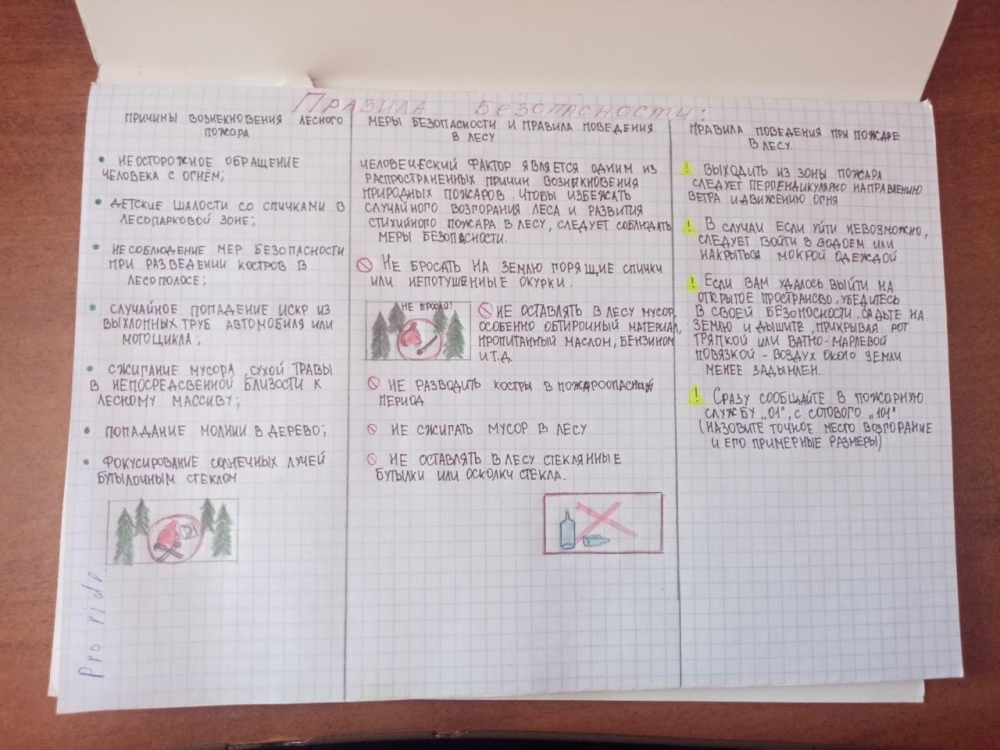 ПРАВИЛА БЕЗОПАСНОСТИ:
ПРИЧИНЫ ВОЗНЕКНОВЕНИЯ ЛЕСНОГО
ПОЖОРА
• НЕОСТОРОЖНОЕ ОБРАЩЕНИЕ
ЧЕЛОВЕКА С ОГНЁМ;
• ДЕТСКИЕ ШАЛОСТИ СО СПИЧКАМИ В
ЛЕСОПАРКОВОЙ ЗОНЕ;
• НЕСОБЛЮДЕНИЕ МЕР БЕЗОПАСНОСТИ
ПРИ РАЗВЕДЕНИИ КОСТРОВ В
ЛЕСОПОЛОСЕ;
• СЛУЧАЙНОЕ ПОПАДЕНИЕ ИСКР ИЗ
ВЫХЛОПНЫХ ТРУБ АВТОМОБИЛЯ ИЛИ
МОТОЦИКЛА;
• СЖИГАНИЕ МУСОРА, СУХОЙ ТРАВЫ
В НЕПОСРЕДСВЕННОЙ БЛИЗОСТИ К
ЛЕСНОМУ МАССИВУ;
• ПОПАДАНИЕ МОЛНИИ В ДЕРЕВО;
• ФОКУСИРОВАНИЕ СОЛНЕЧНЫХ ЛУЧЕЙ
БУТЫЛОЧНЫМ СТЕКЛОМ
МЕРЫ БЕЗОПАСНОСТИ И ПРАВИЛА ПОВЕДЕНИЯ
В ЛЕСУ
ЧЕЛОВЕЧЕСКИЙ ФАКТОР ЯВЛЯЕТСЯ ОДНИМ ИЗ
РАСПРОСТРАНЕННЫХ ПРИЧИН ВОЗНИКНОВЕНИЯ
ПРИРОДНЫХ ПОЖАРОВ. ЧТОБЫ ИЗБЕЖАТЬ
СЛУЧАЙНОГО ВОЗГОРАНИЯ ЛЕСА И РАЗВИТИЯ
СТИХИЙНОГО ПОЖАРА В ЛЕСУ, СЛЕДУЕТ СОБЛЮДАТЬ
МЕРЫ БЕЗОПАСНОСТИ.
НЕ БРОСАТЬ НА ЗЕМЛЮ ГОРЯЩИЕ СПИЧКИ
ИЛИ НЕПОТУШЕННЫЕ ОКУРКИ.
НЕ БРОСАЙ!
НЕ ОСТАВЛЯТЬ В ЛЕСУ МУСОР,
ОСОБЕННО ОБТИРОЧНЫЙ МАТЕРИАЛ,
ПРОПИТАННЫЙ МАСЛОМ, БЕНЗИНОМ
И Т.Д.
НЕ РАЗВОДИТЬ КОСТРЫ В ПОЖАРООПАСНЫЙ
ПЕРИОД
НЕ СЖИГАТЬ МУСОР В ЛЕСУ
НЕ ОСТАВЛЯТЬ В ЛЕСУ СТЕКЛЯННЫЕ
БУТЫЛКИ ИЛИ ОСКОЛКИ СТЕКЛА.
ПРАВИЛА ПОВЕДЕНИЯ ПРИ ПОЖАРЕ
В ЛЕСУ.
! ВЫХОДИТЬ ИЗ ЗОНЫ ПОЖАРА
СЛЕДУЕТ ПЕРПЕНДИКУЛЯРНО НАПРАВЛЕНИЮ
ВЕТРА И ДВИЖЕНИЮ ОГНЯ
! В СЛУЧАИ ЕСЛИ УЙТИ НЕВОЗМОЖНО,
СЛЕДУЕТ ВОЙТИ В ВОДОЕМ ИЛИ
НАКРЫТЬСЯ МОКРОЙ ОДЕЖДОЙ
! ЕСЛИ ВАМ УДАЛОСЬ ВЫЙТИ НА
ОТКРЫТОЕ ПРОСТРАНСТВО, УБЕДИТЕСЬ
В СВОЕЙ БЕЗОПОСНОСТИ, САДЬТЕ НА
ЗЕМЛЮ И ДЫШИТЕ, ПРИКРЫВАЯ РОТ
ТРЯПКОЙ ИЛИ ВАТНО-МАРЛЕВОЙ
ПОВЯЗКОЙ - ВОЗДУХ ОКОЛО ЗЕМЛИ
МЕНЕЕ ЗАДЫМЛЕН.
! СРАЗУ СООБЩАЙТЕ В ПОЖАРНУЮ
СЛУЖБУ „01", С СОТОВОГО „101"
(НАЗОВИТЕ ТОЧНОЕ МЕСТО ВОЗГОРАНИЕ
И ЕГО ПРИМЕРНЫЕ РАЗМЕРЫ)